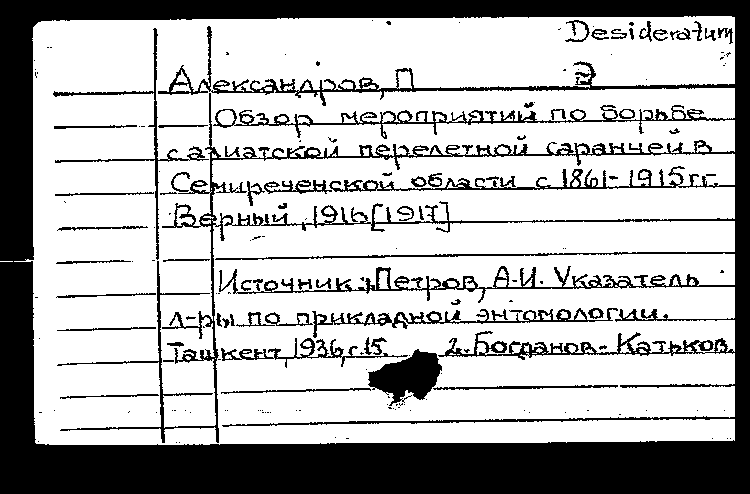 Desideratum
Александров, П Э
Обзор мероприятий по борьбе
с азиатской перелетной саранчей в
Семиреченской области с 1861-1915 гг.
Верный, 1916 [1917]
Источник: 1. Петров, А.И. Указатель
л-ры по прикладной энтомологии.
Ташкент, 1936, с.15. 2. Богданов-Катьков.